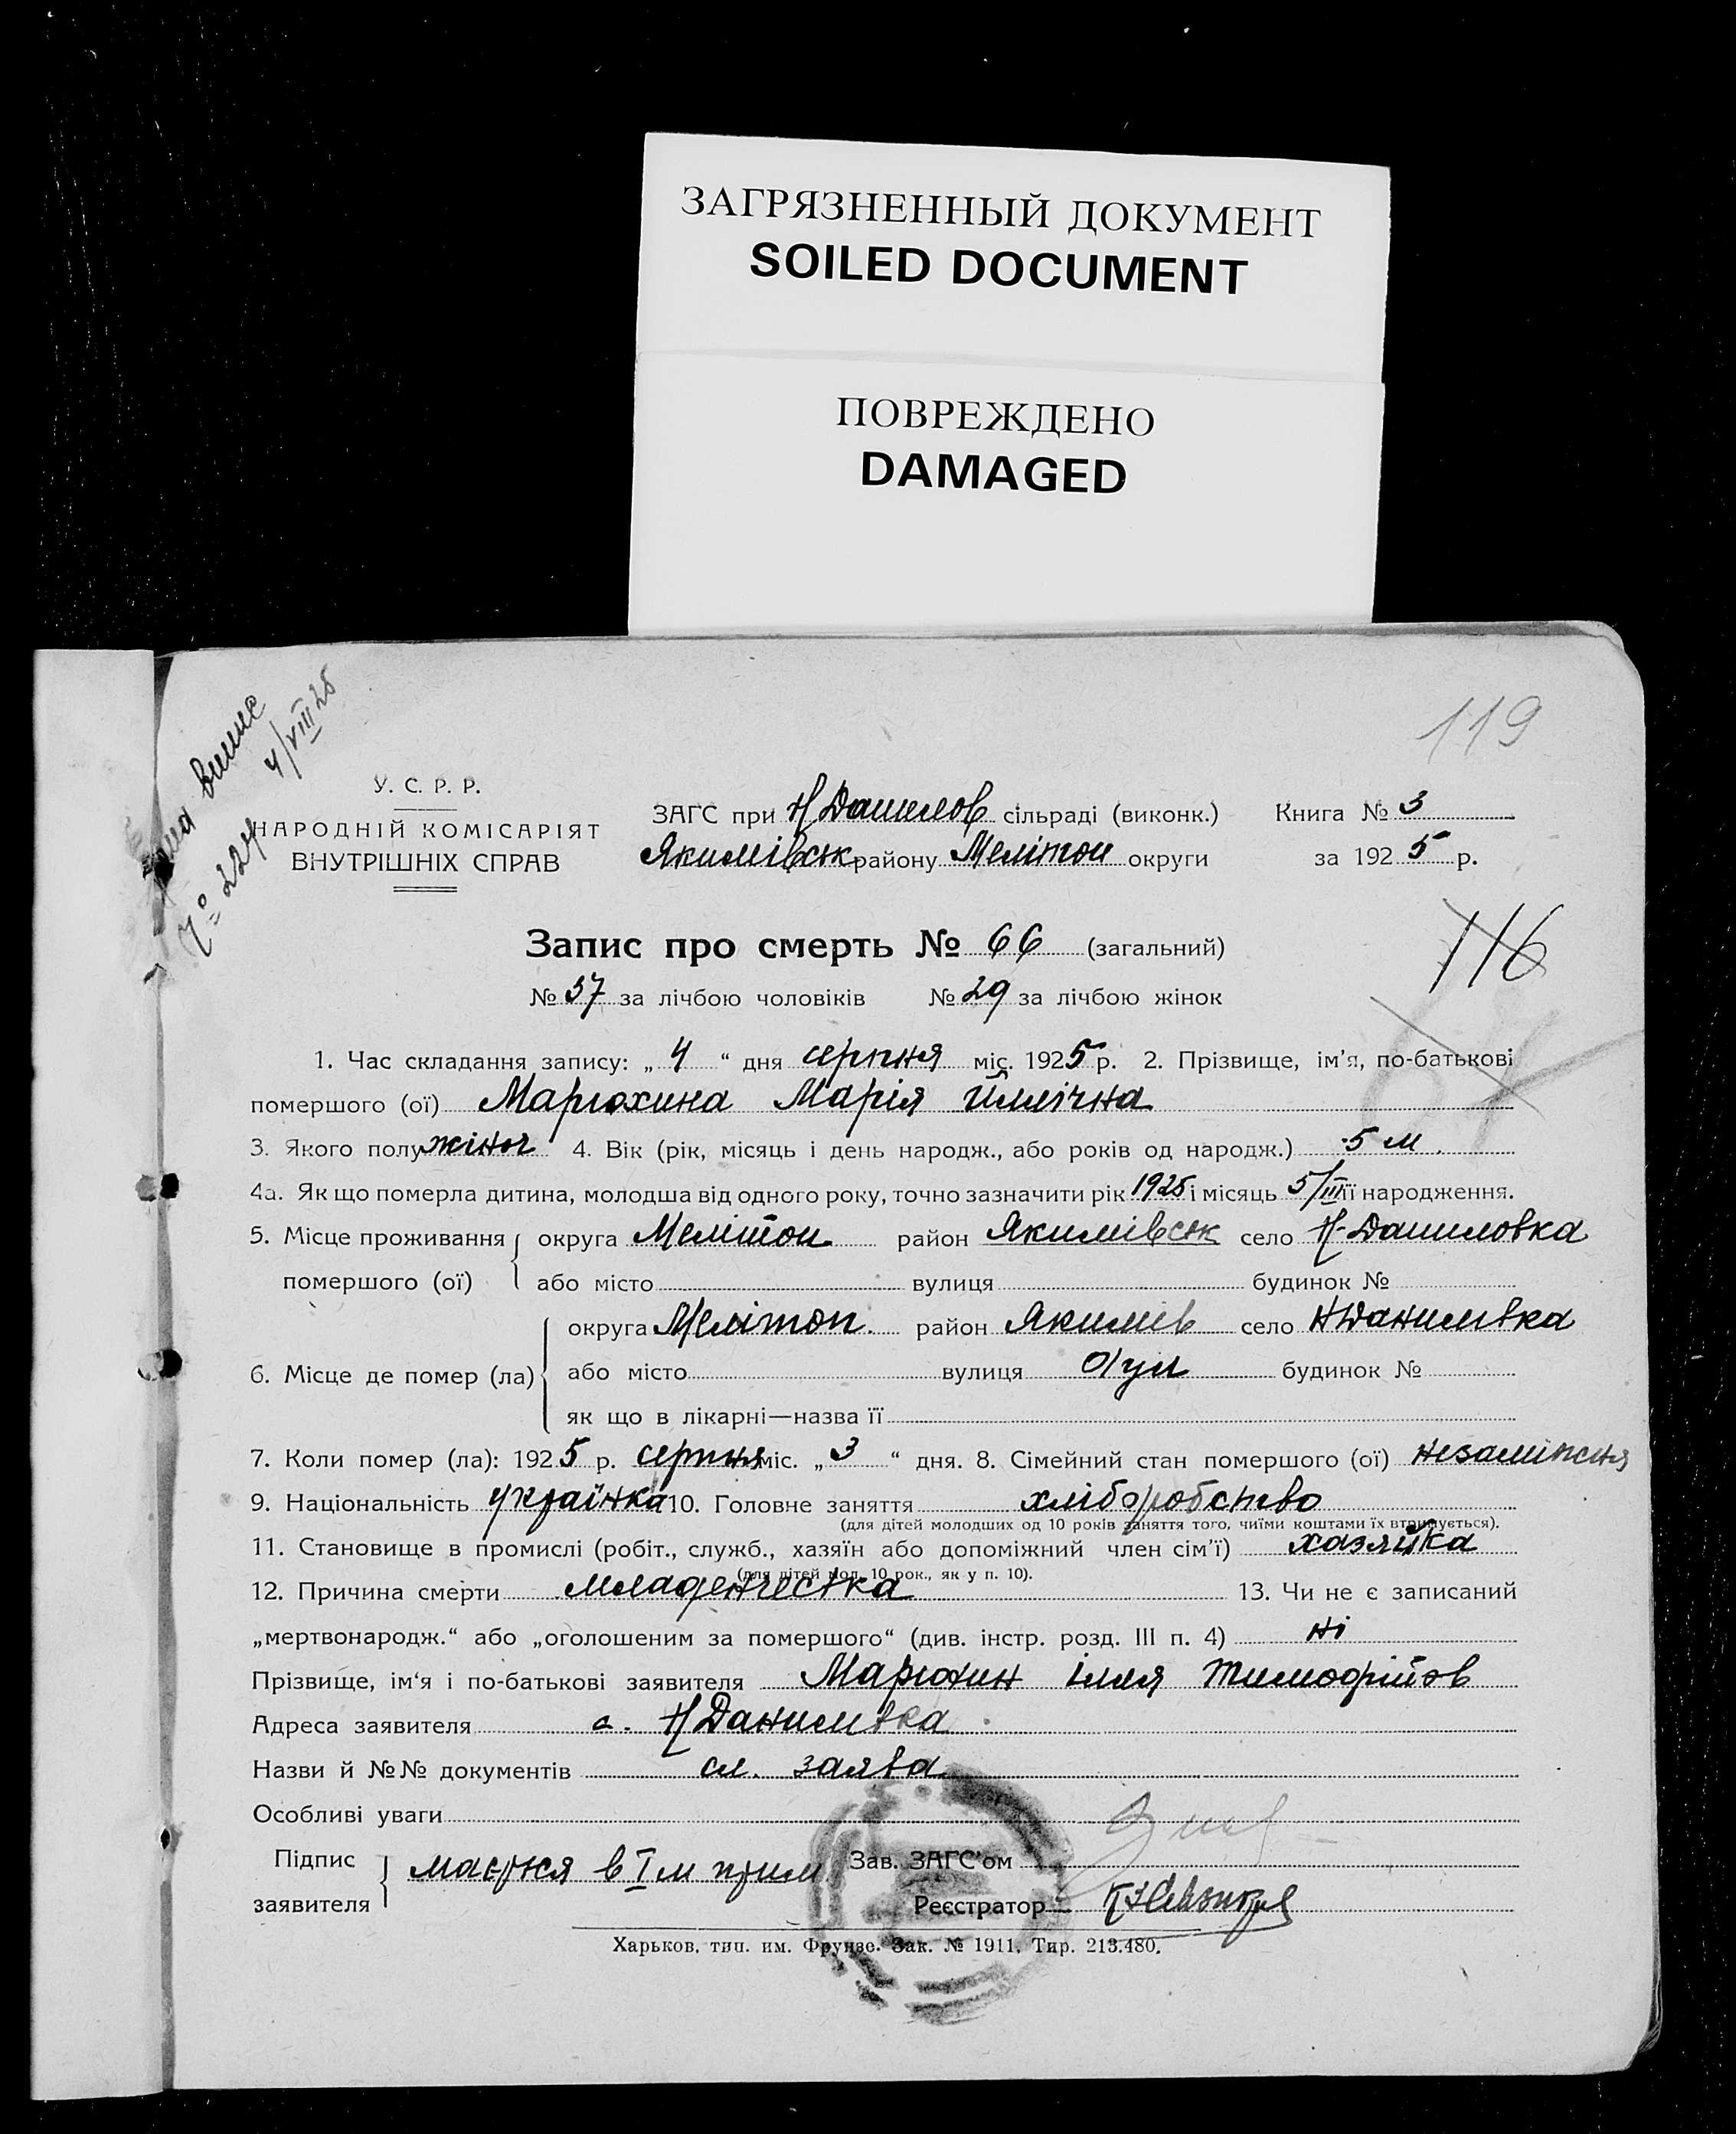 ЗАГРЯЗНЕННЫЙ ДОКУМЕНТ
SOILED DOCUMENT
ПОВРЕЖДЕНО
DAMAGED
119
4/VIII 25
№ 224
У. С. Р. Р.
НАРОДНІЙ КОМІСАРІЯТ
ВНУТРІШНІХ СПРАВ
ЗАГС при Н Данилов сільраді (виконк.) Книга № 3
Якимівськ району Мелітоп округи за 1925 р.
116
Запис про смерть № 66 (загальний)
№ 37 за лічбою чоловіків № 29 за лічбою жінок
1. Час складання запису: „ 4 “ дня серпня міс. 1925 р. 2. Прізвище, ім’я, по-батькові
помершого (ої) Марюхина Марія Іллічна
3. Якого полу жіноч 4. Вік (рік, місяць і день народж., або років од народж.) 5 м.
4а. Як що померла дитина, молодша від одного року, точно зазначити рік 1925 і місяць 5/III її народження.
5. Місце проживання округа Мелітоп район Якимівськ село Н-Даниловка
помершого (ої) або місто вулиця будинок №
округа Мелітоп. район Якимів село НДанилівка
6. Місце де помер (ла) або місто вулиця будинок №
як що в лікарні—назва її
7. Коли помер (ла): 1925 р. серпня міс. „ 3 “ дня. 8. Сімейний стан помершого (ої) незаміжня
9. Національність українка 10. Головне заняття хліборобство
(для дітей молодших од 10 років заняття того, чиїми коштами їх втримується).
11. Становище в промислі (робіт., служб., хазяїн або допоміжний член сім’ї) хазяйка
(для дітей мол. 10 рок., як у п. 10).
12. Причина смерти младенческа 13. Чи не є записаний
„мертвонародж.“ або „оголошеним за помершого“ (див. інстр. розд. III п. 4) ні
Прізвище, ім‘я і по-батькові заявителя Марюхин Ілля Тимофійов
Адреса заявителя с. Н Данилівка
Назви й №№ документів сл. заява
Особливі уваги
Підпис
заявителя мається в I м прим
Зав. ЗАГС’ом
Реєстратор
Харьков, тип. им. Фрунзе. Зак. № 1911. Тир. 213.480.